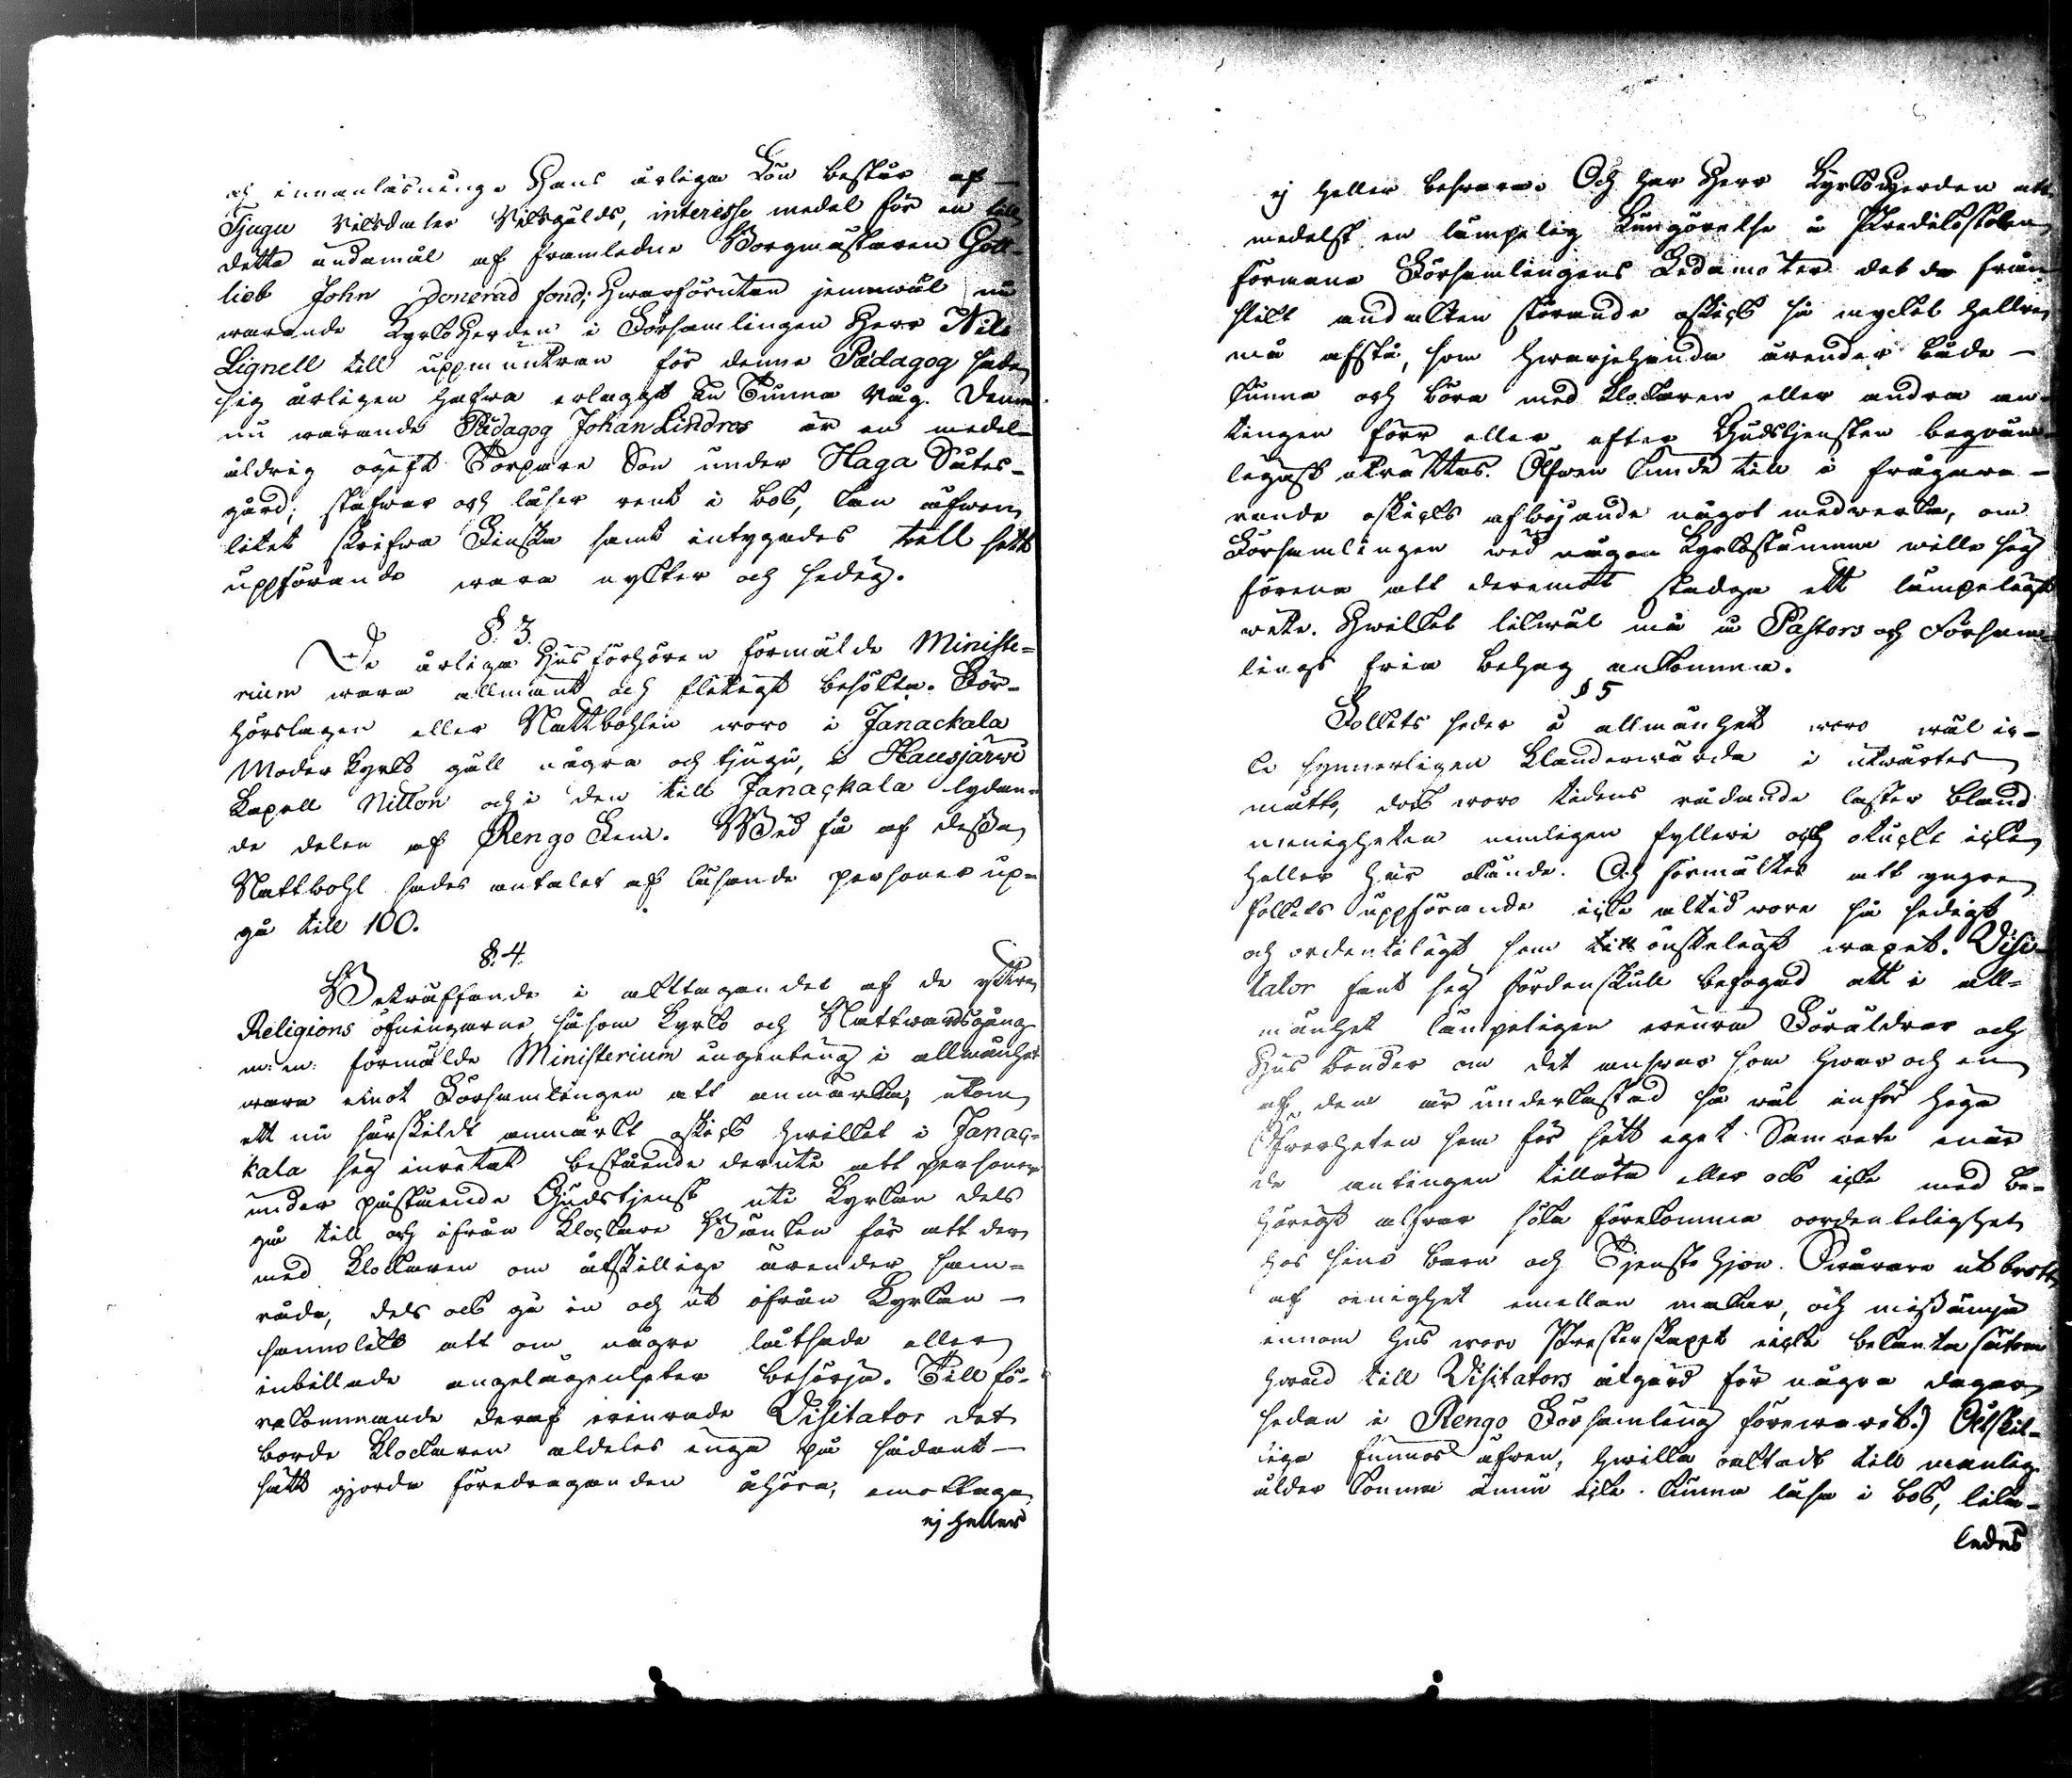 och innanläsning. Hans årliga Lön består af
Tjugu riksdaler Riksgälds, interesse medel för en till
detta ändamål af framledne Borgmästaren Gott-
lieb John Donerad fond; hvarförutan jemnwäl nu
warande Kyrkoherden i Församlingen Herr Nils
Lignell till uppmuntran för denne Pædagog sade
sig årligen hafwa erlagt En Tunna råg. Denne
nu warande Pædagog Johan Lindros är en medel-
åldrig ogift Torpare Son under Haga Säteri-
gård; stafwar och läser rent i bok, kan äfwen
litet skrifwa Finska samt intygades till sitt
uppförande wara nykter och sedig.
§. 3.
De årliga Husförhören förmälde Ministe-
rium wara allmänt och flitigt besökta. För-
hörslagen eller Nattbohlen woro i Janackala
Moder Kyrko gäll några och tjugu, i Hausjärwi
Kapell Nitton och i den till Janackala lydan-
de delen af Rengo Fem. Wid få af dessa
Nattbohl sades antalet af läsande personer up-
gå till 100.
§. 4.
Beträffande iakttagandet af de yttre
Religions öfningarne, såsom Kyrko och Nattwardsgång
m: m: förmälde Ministerium ingenting i allmänhet
wara emot Församlingen att anmärka, utom
ett nu särskildt anmärkt oskick hwilket i Janac-
kala sig inritat bestående deruti att personer
under påstående Gudstjenst uti Kyrkan dels
gå till och ifrån Klockare Bänken för att der
med Klockaren om åtskillige ärender sam-
råda, dels ock gå in och ut ifrån Kyrkan
sannolikt att om några låtsade eller
inbillade angelägenheter besörja. Till fö-
rekommande deraf erinrade Visitator det
borde Klockaren aldeles inga på sådant
sätt gjorda föredraganden åhöra, emottaga
ej heller
ej heller beswara. Och har Herr Kyrkoherden att
medelst en lämpelig Kungörelse å Predikostolen
förmana Församlingens Ledamöter det de från
slikt andakten störande oskick så mycket hellre
må afstå, som hwarjehanda ärender både
kunna och böra med Klockaren eller andra an-
tingen förr eller efter Gudstjensten beqväm-
ligast uträttas. Äfwen kunde till i frågawa-
rande oskicks afböjande något medwerka, om
Församlingen wid någon Kyrkostämma wille sig
förena att deremot stadga ett lämpeligt
wite. Hwilket likwäl må å Pastors och Försam-
lings fria behag ankomma.
§ 5
Folkets seder i allmänhet woro wäl ic-
ke synnerligen klanderwärda i utwärtes
måtto, dock woro tidens rådande laster bland
menigheten nemligen fylleri och otuckt icke
heller här okände. Och förmältes att yngre
folkets uppförande icke altid wore så sedigt
och ordenteligt som till önskeligt waret. Visi-
tator fant sig fördenskull befogad att i all-
mänhet lämpeligen erinra Föräldrar och
Husbonder om det answar som hwar och en
af dem är underkastad så wäl inför höga
Öfwerheten som för sitt eget Samwete enär
de antingen tillåta eller ock icke med be-
hörigt alfwar söka förekomma oordentelighet
hos sine barn och Tjenste hjon. Swårare utbrott
af oenighet emellan makar, och missämja
innom hus woro Presterskapet icke bekanta (utom
hwad till Visitators åtgärd för några dagar
sedan i Rengo Församling förewarit.) Åtskil-
lige funnos äfwen, hwilka oaktadt till manlig
ålder komna ännu icke kunna läsa i bok, lika-
ledes